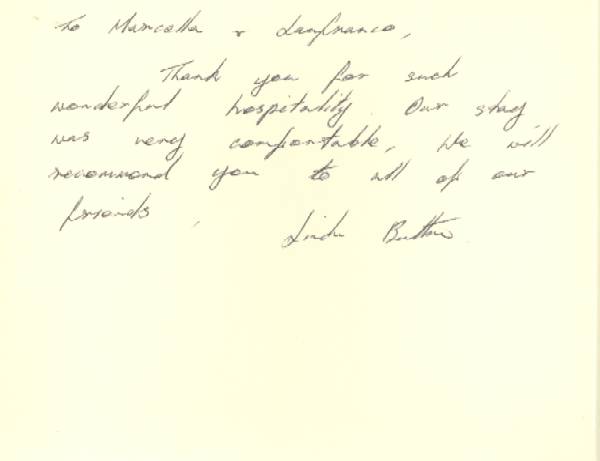 To Marcella & Lanfranco,
Thank you for such
wonderful hospitality. Our stay
was very comfortable, We will
recommend you to all of our
friends,
Linda